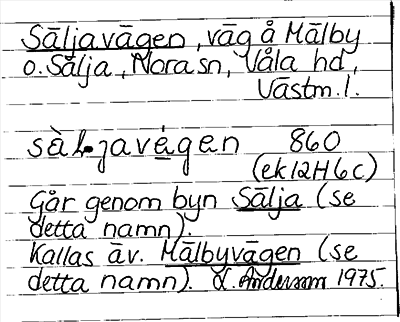 Säljavägen, väg å Mälby
o. Sälja, Nora sn, Våla hd,
Västm. l.
sàl·javégen 860
(ek 12H6c)
Går genom byn Sälja (se
detta namn).
Kallas äv. Mälbyvägen (se
detta namn). L. Andersson 1975.